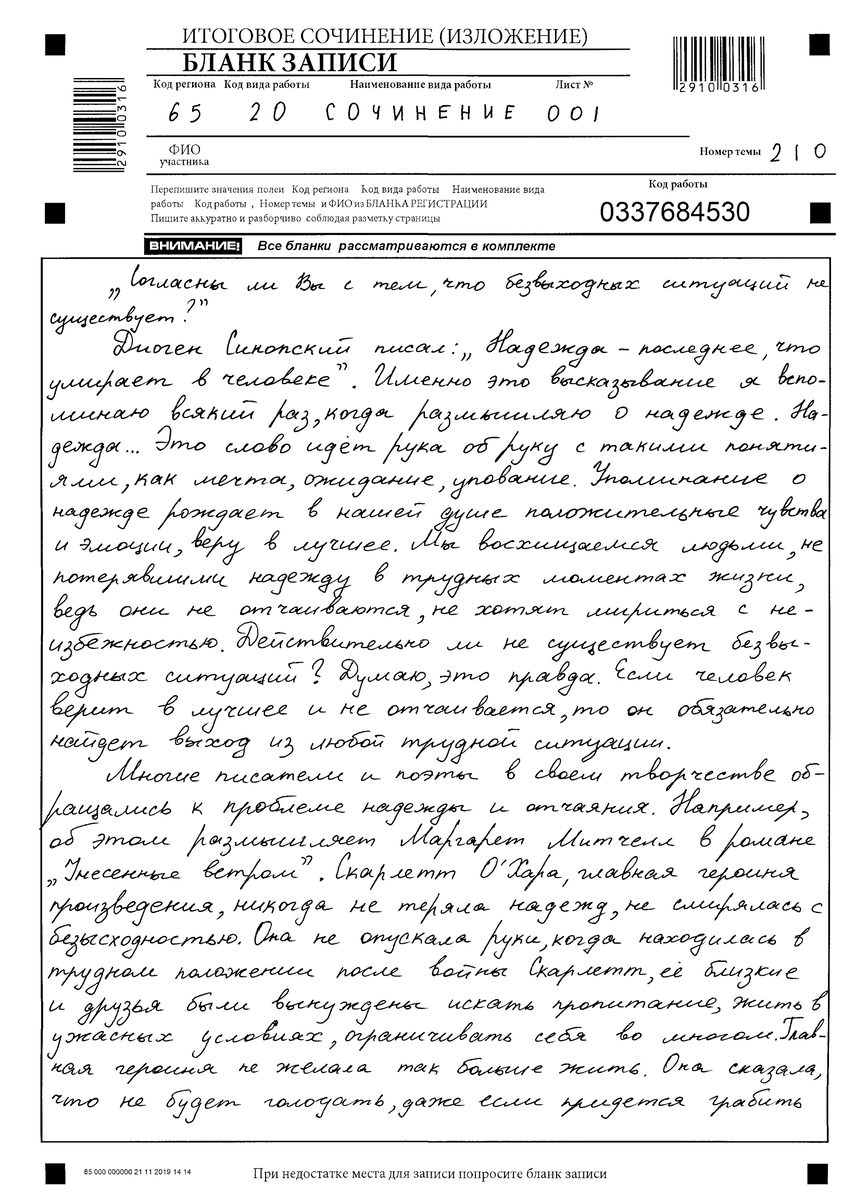 ИТОГОВОЕ СОЧИНЕНИЕ (ИЗЛОЖЕНИЕ)
БЛАНК ЗАПИСИ
Код региона Код вида работы Наименование вида работы Лист №
65 20 СОЧИНЕНИЕ 001
2910 0316
2910 0316
ФИО
участника
Номер темы 210
Перепишите значения полей Код региона Код вида работы Наименование вида
работы Код работы , Номер темы и ФИО из БЛАНКА РЕГИСТРАЦИИ
Пишите аккуратно и разборчиво соблюдая разметку страницы
Код работы
0337684530
ВНИМАНИЕ! Все бланки рассматриваются в комплекте
„Согласны ли Вы с тем, что безвыходных ситуаций не
существует?”
Диоген Синопский писал: „Надежда – последнее, что
умирает в человеке”. Именно это высказывание я вспо-
минаю всякий раз, когда размышляю о надежде. На-
дежда... Это слово идёт рука об руку с такими поняти-
ями, как мечта, ожидание, упование. Упоминание о
надежде рождает в нашей душе положительные чувства
и эмоции, веру в лучшее. Мы восхищаемся людьми, не
потерявшими надежду в трудных моментах жизни,
ведь они не отчаиваются, не хотят мириться с не-
избежностью. Действительно ли не существует безвы-
ходных ситуаций? Думаю, это правда. Если человек
верит в лучшее и не отчаивается, то он обязательно
найдет выход из любой трудной ситуации.
Многие писатели и поэты в своем творчестве об-
ращались к проблеме надежды и отчаяния. Например,
об этом размышляет Маргарет Митчелл в романе
„Унесенные ветром”. Скарлетт О'Хара, главная героиня
произведения, никогда не теряла надежд, не смирялась с
безысходностью. Она не опускала руки, когда находилась в
трудном положении после войны Скарлетт, её близкие
и друзья были вынуждены искать пропитание, жить в
ужасных условиях, ограничивать себя во многом. Глав-
ная героиня не желала так больше жить. Она сказала,
что не будет голодать, даже если придется грабить
65 000 000000 21 11 2019 14 14
При недостатке места для записи попросите бланк записи